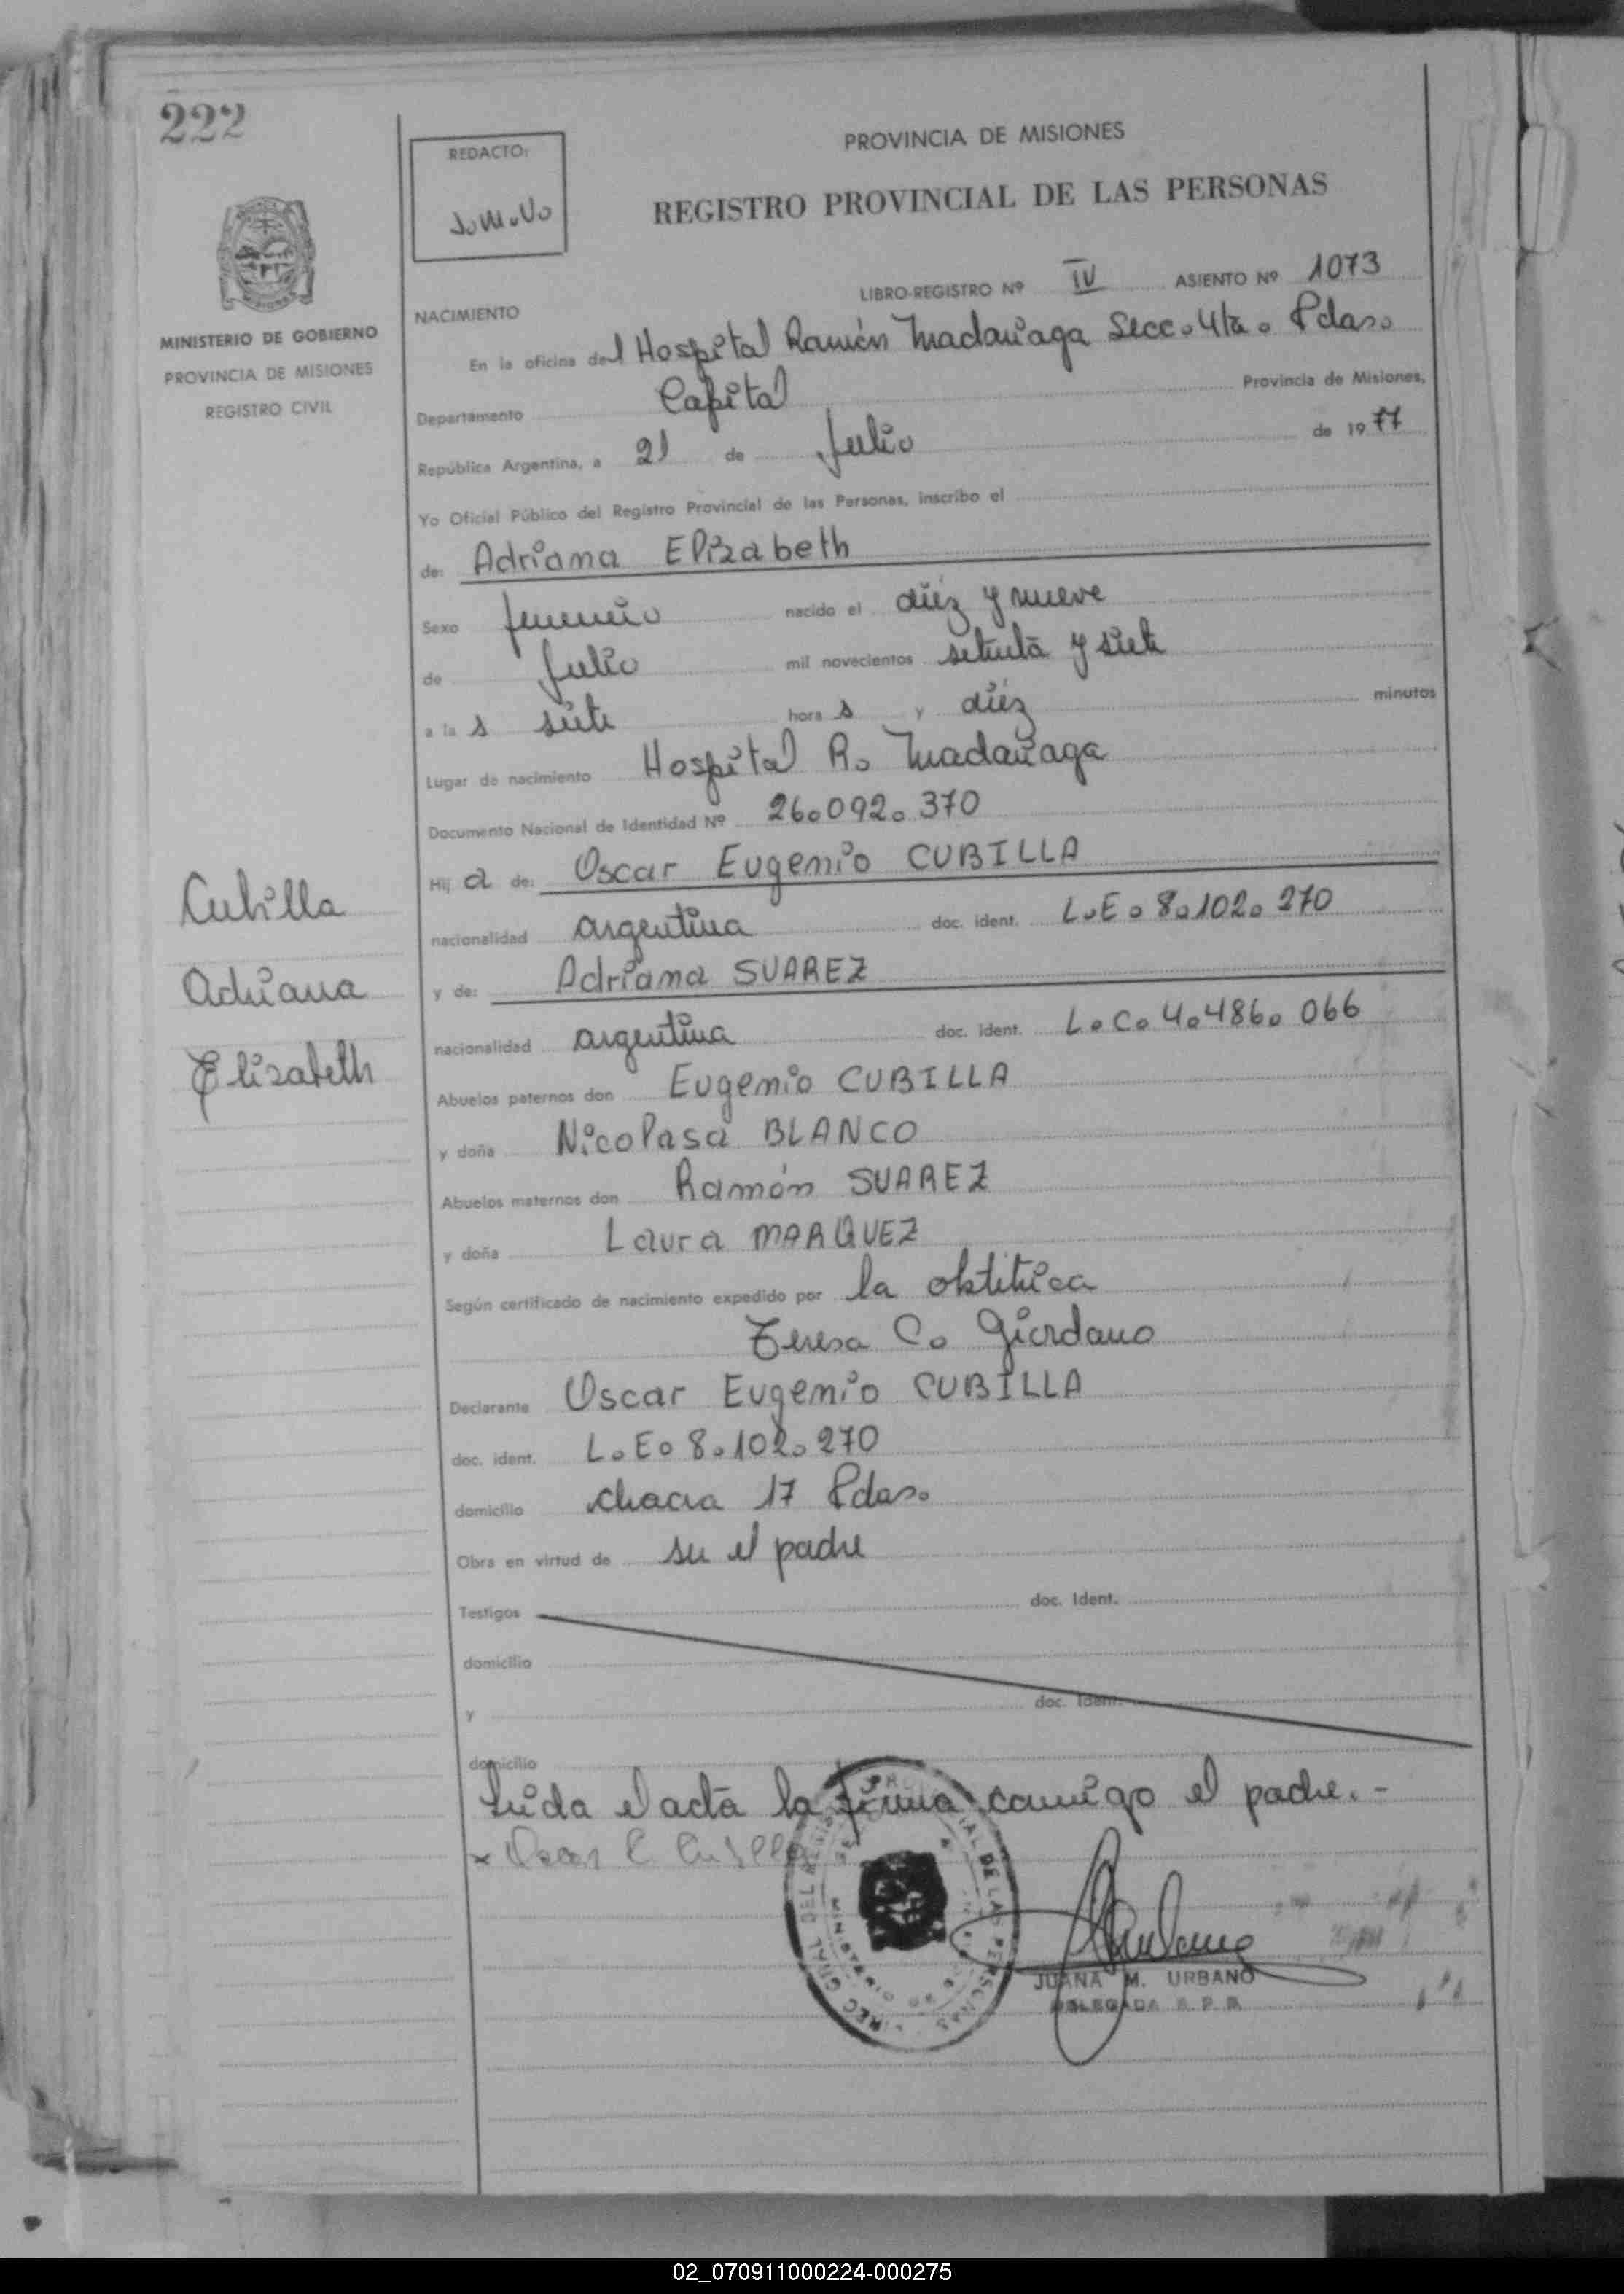 222
REDACTO:
J.M.U.
PROVINCIA DE MISIONES
REGISTRO PROVINCIAL DE LAS PERSONAS
LIBRO-REGISTRO Nº IV ASIENTO Nº 1073
MINISTERIO DE GOBIERNO
PROVINCIA DE MISIONES
REGISTRO CIVIL
NACIMIENTO
En la oficina del Hospital Ramón Madariaga Secc. 4ta. Pdas.
Departamento Capital Provincia de Misiones,
República Argentina, a 21 de Julio de 1977
Yo Oficial Público del Registro Provincial de las Personas, inscribo el
de: Adriana Elizabeth
Sexo femenino nacido el diez y nueve
de Julio mil novecientos setenta y siete
a las siete horas y diez minutos
Lugar de nacimiento Hospital R. Madariaga
Documento Nacional de Identidad Nº 26.092.370
Hija de: Oscar Eugenio CUBILLA
nacionalidad argentina doc. ident. L.E. 8.102.270
y de: Adriana SUAREZ
nacionalidad argentina doc. ident. L.C. 4.486.066
Cubilla
Adriana
Elizabeth
Abuelos paternos don Eugenio CUBILLA
y doña Nicolasa BLANCO
Abuelos maternos don Ramón SUAREZ
y doña Laura MARQUEZ
Según certificado de nacimiento expedido por la obstétrica
Teresa C. Giordano
Declarante Oscar Eugenio CUBILLA
doc. ident. L.E. 8.102.270
domicilio chacra 17 Pdas.
Obra en virtud de ser el padre
Testigos doc. Ident.
domicilio
y doc. Ident.
domicilio
Leida el acta la firma conmigo el padre.-
x Oscar E Cubilla
JUANA M. URBANO
DELEGADA R. P. P.
02_070911000224-000275